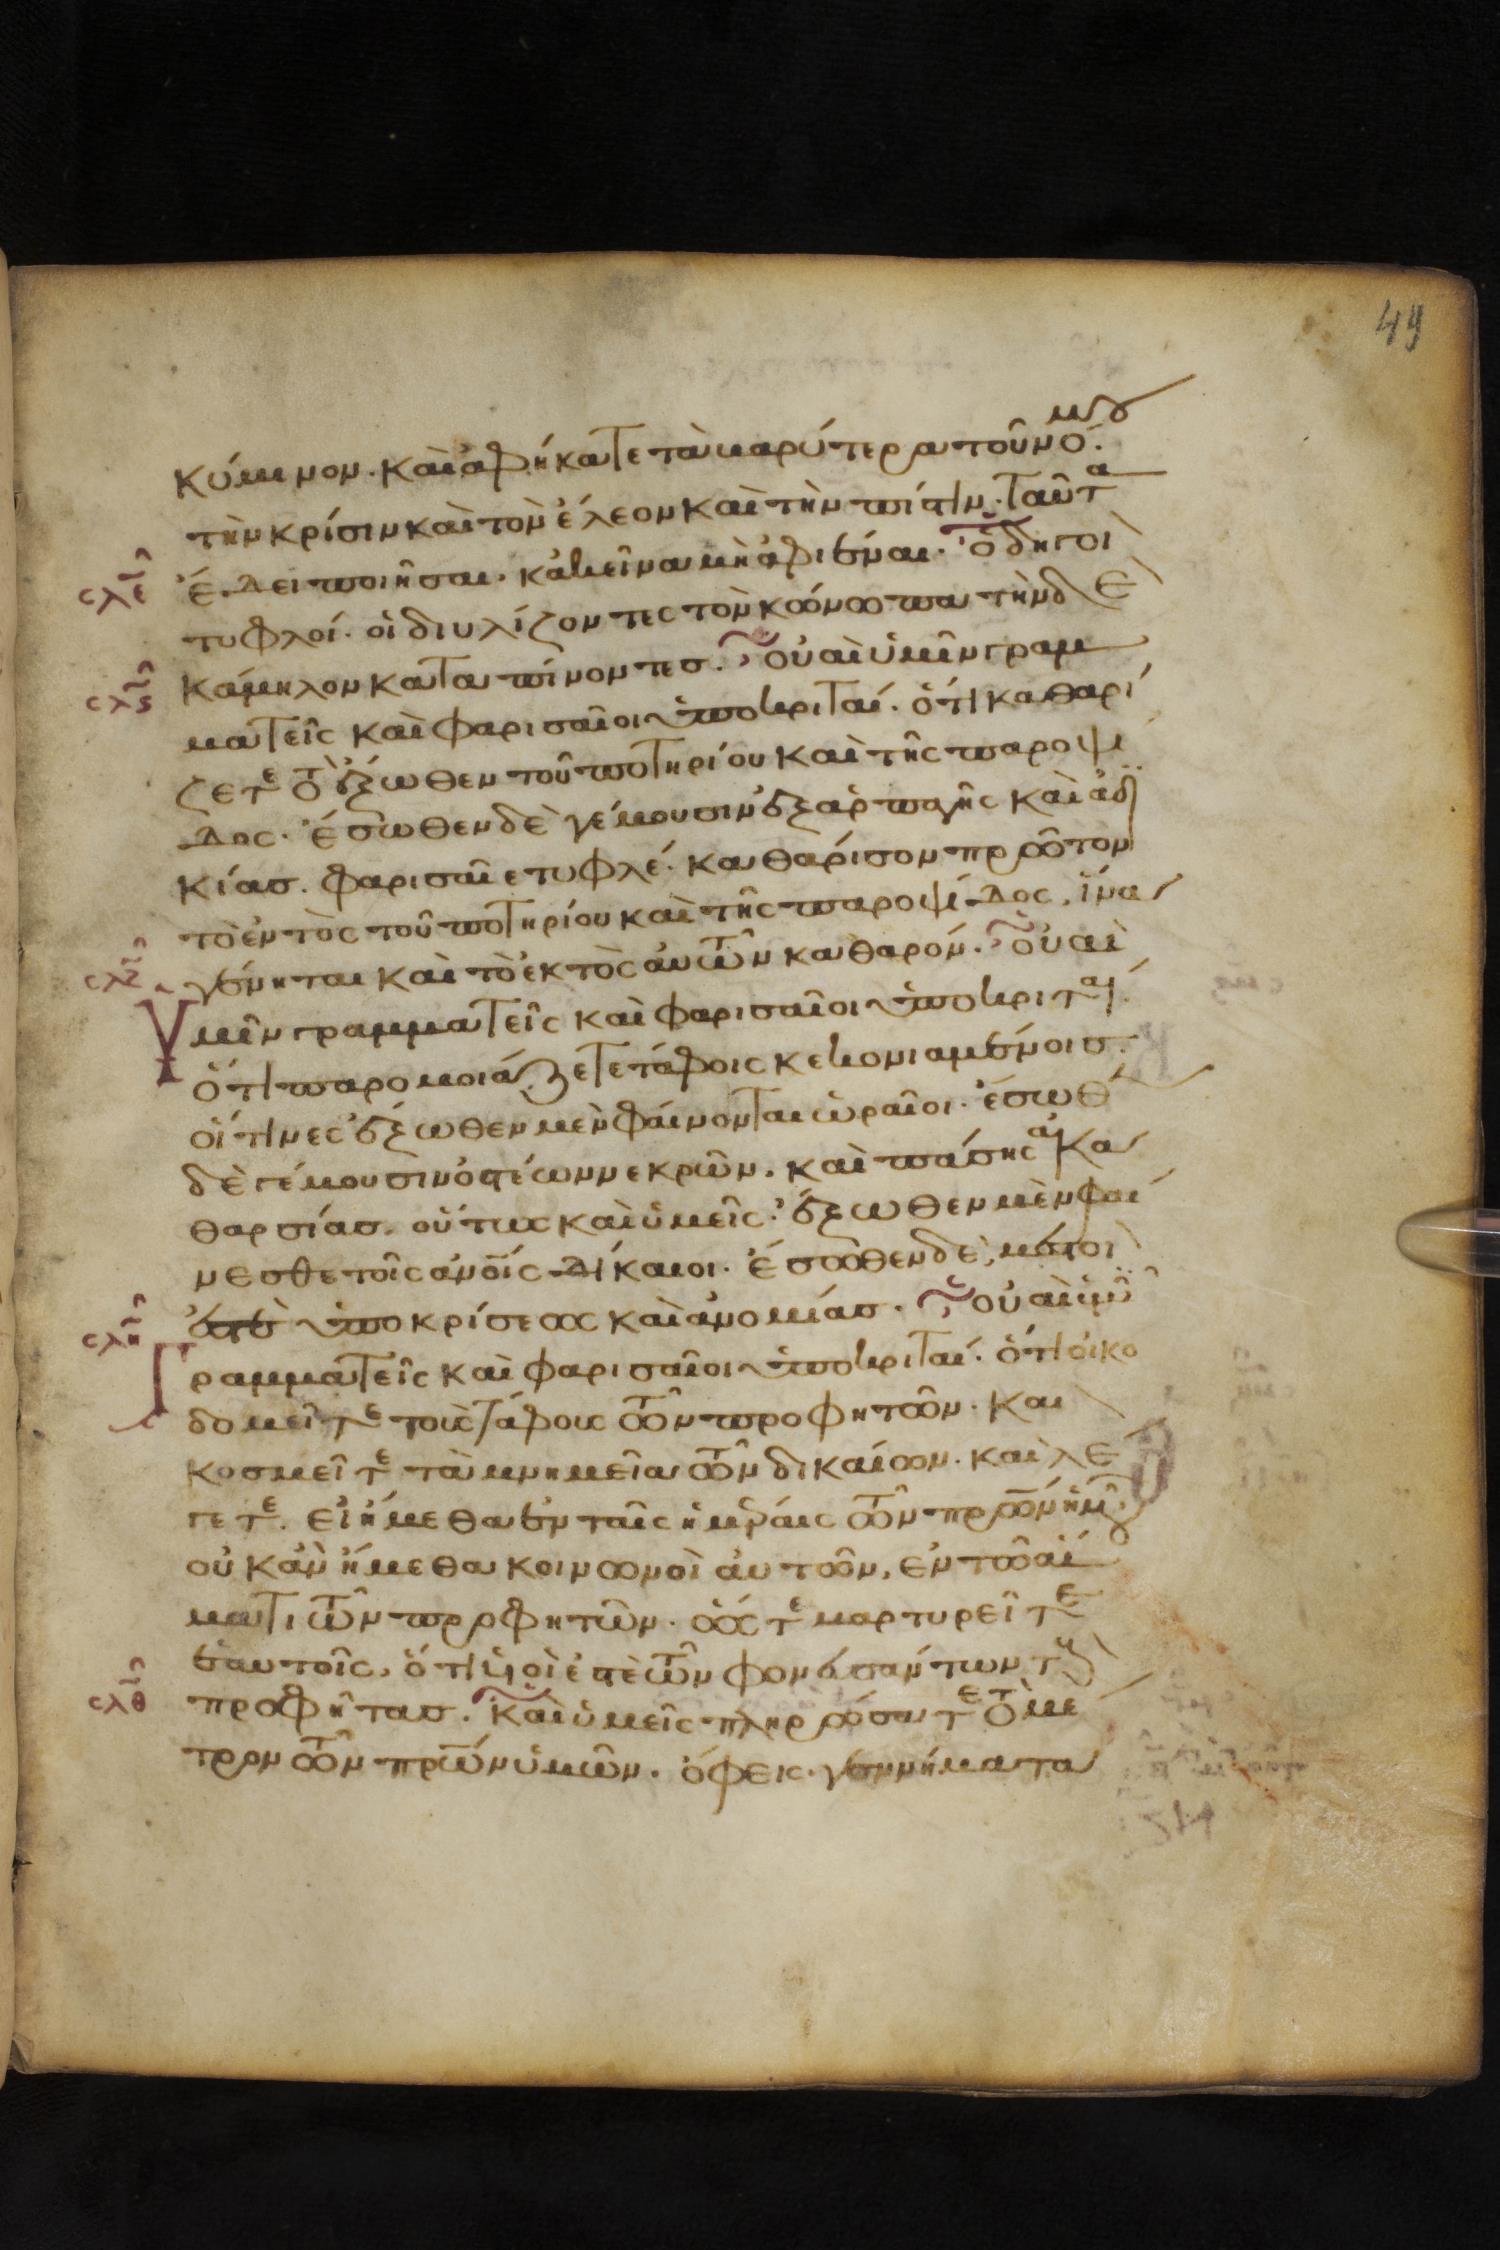 49
κύμινον· καὶ ἀφήκατε τὰ βαρύτερα τοῦ νόμου·
τὴν κρίσιν καὶ τὸν ἔλεον καὶ τὴν πίστιν· ταῦτα
σλε ἔδει ποιῆσαι· κἀκεῖνα μὴ ἀφιέναι· ὁδηγοὶ
τυφλοί· οἱ διυλίζοντες τὸν κώνωπα τὴν δὲ
σλς κάμηλον καταπίνοντες· οὐαὶ ὑμῖν γραμ
ματεῖς καὶ φαρισαῖοι ὑποκριταί· ὅτι καθαρί
ζετε τὸ ἔξωθεν τοῦ ποτηρίου καὶ τῆς παροψί
δος· ἔσωθεν δὲ γέμουσιν ἐξ ἁρπαγῆς καὶ ἀδι
κίας· φαρισαῖε τυφλέ· καθάρισον πρῶτον
τὸ ἐντὸς τοῦ ποτηρίου καὶ τῆς παροψίδος, ἵνα
σλζ γένηται καὶ τὸ ἐκτὸς αὐτῶν καθαρόν· οὐαὶ
Ὑμῖν γραμματεῖς καὶ φαρισαῖοι ὑποκριταί·
ὅτι παρομοιάζετε τάφοις κεκονιαμένοις·
οἵτινες ἔξωθεν μὲν φαίνονται ὡραῖοι· ἔσωθ
δὲ γέμουσιν ὀστέων νεκρῶν· καὶ πάσης ἀκα
θαρσίας· οὕτως καὶ ὑμεῖς· ἔξωθεν μὲν φαί
νεσθε τοῖς ἀνοις δίκαιοι· ἔσωθεν δὲ, μεστοί
σλη ἐστὲ ὑποκρίσεως καὶ ἀνομίας· οὐαὶ ὑμῖν
Γραμματεῖς καὶ φαρισαῖοι ὑποκριταί· ὅτι οἰκο
δομεῖτε τοὺς τάφους τῶν προφητῶν· καὶ
κοσμεῖτε τὰ μνημεῖα τῶν δικαίων· καὶ λέ
γετε· εἰ ἤμεθα ἐν ταῖς ἡμέραις τῶν πρων ἡμῶν
οὐκ ἂν ἤμεθα κοινωνοὶ αὐτῶν, ἐν τῷ αἵ
ματι τῶν προφητῶν· ὥστε μαρτυρεῖτε
ἑαυτοῖς, ὅτι υἱοί ἐστὲ τῶν φονευσάντων τοὺς
σλθ προφήτας· Καὶ ὑμεῖς πληρώσατε τὸ μέ
τρον τῶν πρων ὑμῶν· ὄφεις· γεννήματα